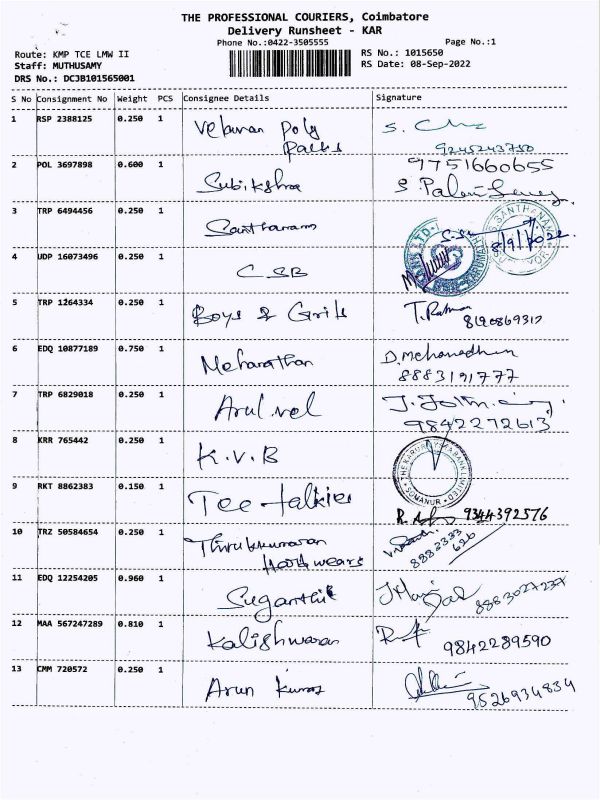 THE PROFESSIONAL COURIERS, Coimbatore
Delivery Runsheet - KAR
Phone No.:0422-3505555 Page No.:1
Route: KMP TCE LMW II RS No.: 1015650
Staff: MUTHUSAMY RS Date: 08-Sep-2022
DRS No.: DCJB101565001
S No Consignment No Weight PCS Consignee Details Signature
1 RSP 2388125 0.250 1 Velavan Poly
Packs 9245243750
2 POL 3697898 0.600 1 Subiksha 9751660655
3 TRP 6494456 0.250 1 Santharam 8/9/2022
4 UDP 16073496 0.250 1 CSB
5 TRP 1264334 0.250 1 Boys & Grils T. Ratna
6 EDQ 10877189 0.750 1 Meharathan
8883191777
7 TRP 6829018 0.250 1 Arul vel
9842272613
8 KRR 765442 0.250 1 K.V.B
SOMANUR
9 RKT 8862383 0.150 1 Tee talkies
9344392576
10 TRZ 50584654 0.250 1 Thirukumaran 8882333
626
11 EDQ 12254205 0.960 1 Suganthi
12 MAA 567247289 0.810 1 Kalishwaran 9842289590
13 CMM 720572 0.250 1 Arun Kumar 9526934834